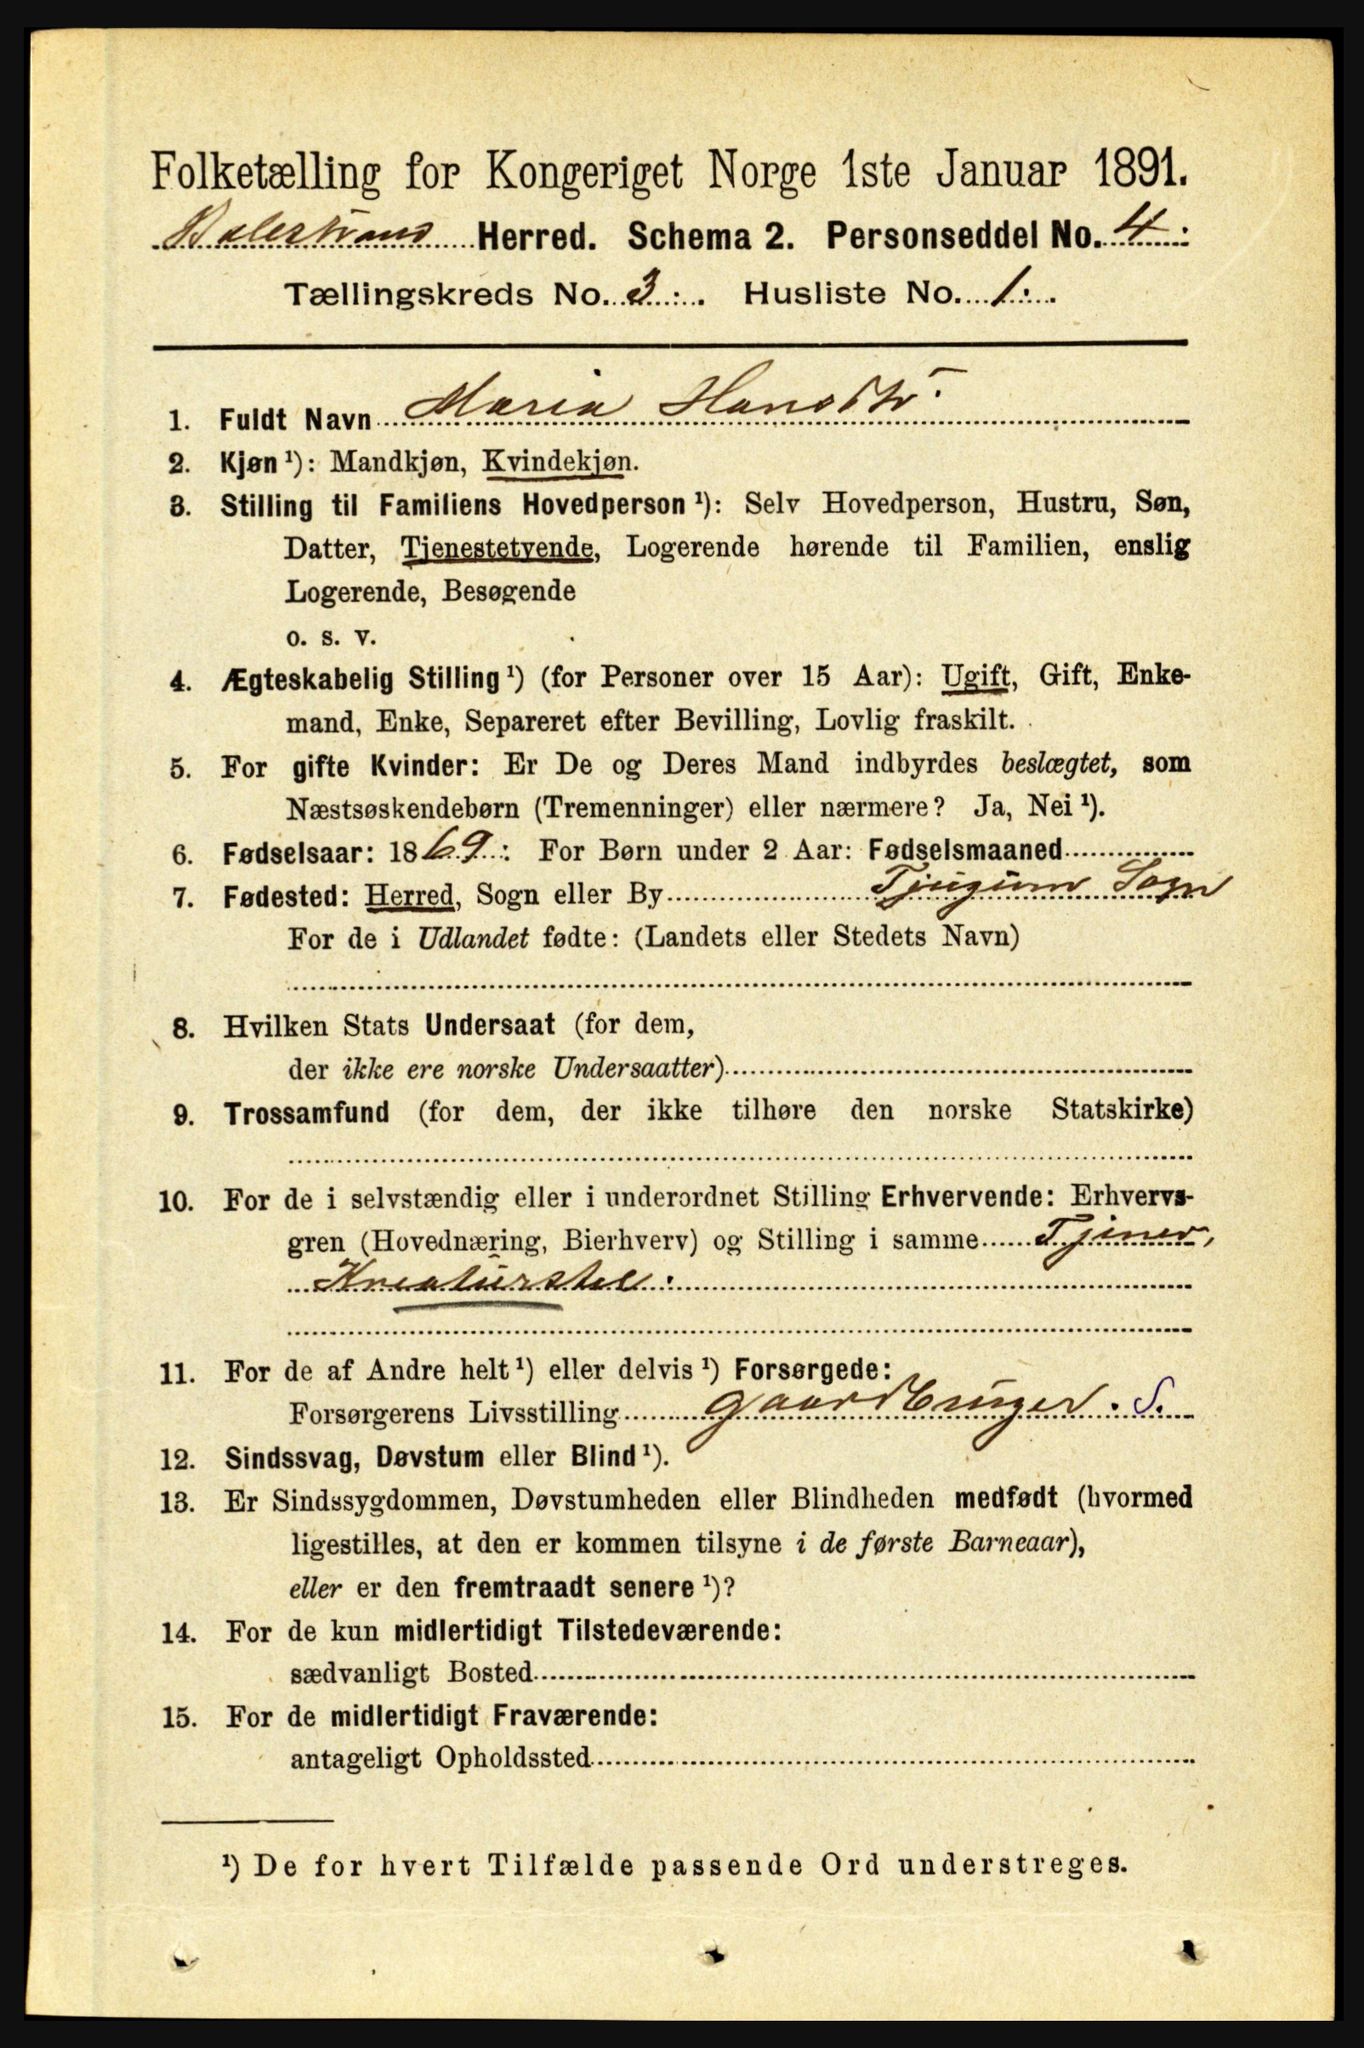 Folketælling for Kongeriget Norge 1ste Januar 1891.
Balestrand Herred. Schema 2. Personseddel No. 4.
Tællingskreds No. 3. Husliste No. 1.
1. Fuldt Navn Maria Hansdtr.
2. Kjøn ¹): Mandkjøn, Kvindekjøn.
3. Stilling til Familiens Hovedperson ¹): Selv Hovedperson, Hustru, Søn,
Datter, Tjenestetyende, Logerende hørende til Familien, enslig
Logerende, Besøgende
o. s. v.
4. Ægteskabelig Stilling ¹) (for Personer over 15 Aar): Ugift, Gift, Enke-
mand, Enke, Separeret efter Bevilling, Lovlig fraskilt.
5. For gifte Kvinder: Er De og Deres Mand indbyrdes beslægtet, som
Næstsøskendebørn (Tremenninger) eller nærmere? Ja, Nei ¹).
6. Fødselsaar: 1869: For Børn under 2 Aar: Fødselsmaaned
7. Fødested: Herred, Sogn eller By Tjugum Sogn
For de i Udlandet fødte: (Landets eller Stedets Navn)
8. Hvilken Stats Undersaat (for dem,
der ikke ere norske Undersaatter)
9. Trossamfund (for dem, der ikke tilhøre den norske Statskirke)
10. For de i selvstændig eller i underordnet Stilling Erhvervende: Erhvervs-
gren (Hovednæring, Bierhverv) og Stilling i samme Tjener,
Kreaturstel:
11. For de af Andre helt ¹) eller delvis ¹) Forsørgede:
Forsørgerens Livsstilling Gaardbruger. S.
12. Sindssvag, Døvstum eller Blind ¹).
13. Er Sindssygdommen, Døvstumheden eller Blindheden medfødt (hvormed
ligestilles, at den er kommen tilsyne i de første Barneaar),
eller er den fremtraadt senere ¹)?
14. For de kun midlertidigt Tilstedeværende:
sædvanligt Bosted
15. For de midlertidigt Fraværende:
antageligt Opholdssted
¹) De for hvert Tilfælde passende Ord understreges.